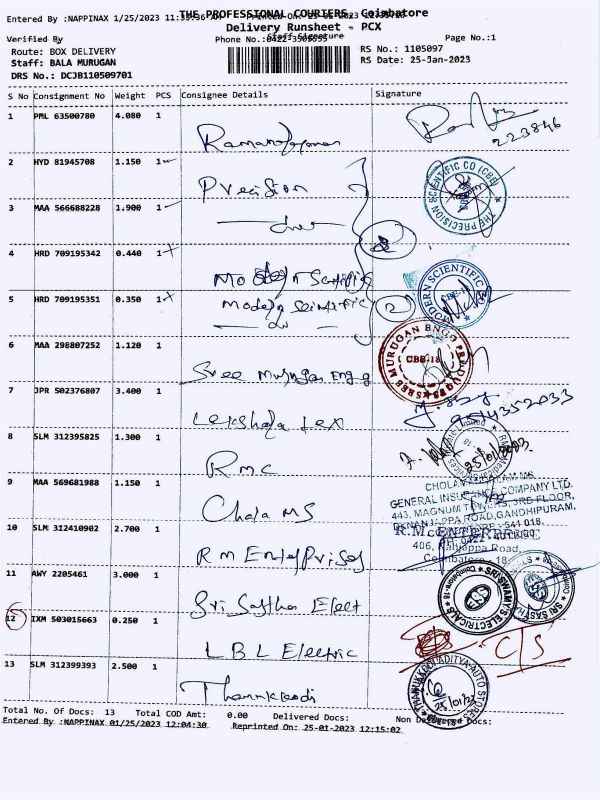 THE PROFESSIONAL COURIERS, Coimbatore
Entered By :NAPPINAX 1/25/2023
Delivery Runsheet - PCX
Verified By
Phone No.:0422-3505555
Staff Signature
Page No.:1
Route: BOX DELIVERY
RS No.: 1105097
Staff: BALA MURUGAN
RS Date: 25-Jan-2023
DRS No.: DCJB110509701
S No Consignment No Weight PCS Consignee Details Signature
1 PML 63500780 4.080 1
223846
2 HYD 81945708 1.150 1 Precision
THE PRECISION SCIENTIFIC CO (CBE)
3 MAA 566688228 1.900 1
4 HRD 709195342 0.440 1 Modern Scientific
MODERN SCIENTIFIC
5 HRD 709195351 0.350 1 Modern Scientific
2
6 MAA 298807252 1.120 1 Sree Murugan Engg
SREE MURUGAN ENGG PRODUCTS
CBE-18
7 JPR 502376807 3.400 1
9514352033
8 SLM 312395825 1.300 1 RMC
25/01/2023
9 MAA 569681988 1.150 1 Chola MS
CHOLAMANDALAM MS
GENERAL INSURANCE COMPANY LTD.
443, MAGNUM TOWERS, 3RD FLOOR,
NANJAPPA ROAD, GANDHIPURAM,
10 SLM 312410902 2.700 1 RM Enterprises
R.M. ENTERPRISE
406, Kalijappa Road
Coimbatore - 18
11 AWY 2205461 3.000 1 Sri Sastha Elect
SRI SWAMY'S ELECTRICALS
Coimbatore-18
SRI SASTHA
12 IXM 503015663 0.250 1 LBL Electric
C/S
13 SLM 312399393 2.500 1
ADITYA AUTO STORES
25/01/23
Total No. Of Docs: 13 Total COD Amt: 0.00 Delivered Docs: Non Docs:
Entered By :NAPPINAX 01/25/2023 12:04:30 Reprinted On: 25-01-2023 12:15:02